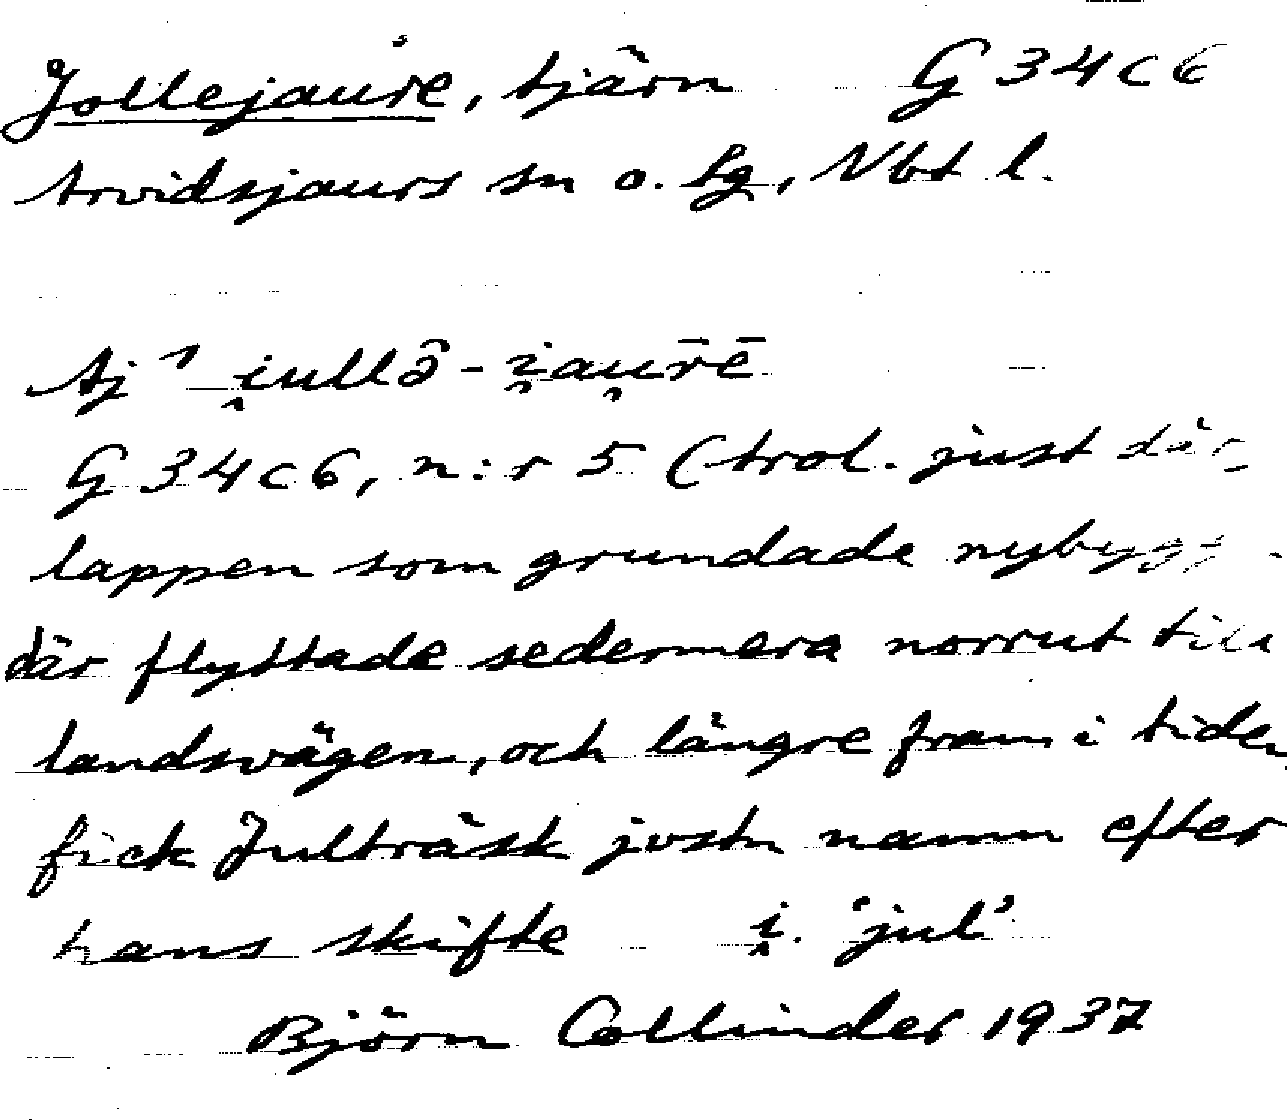 Jollejaure, tjärn G 34 c 6
Arvidsjaurs sn o. lg, Nbt l.
Aj i̯ullə̑ - i̯au̯r̄ē
G 34 c 6, n:r 5 (trol. just där,
lappen som grundade nybygg-
där flyttade sedermera norrut till
landsvägen, och längre fram i tiden
fick Jultråsk jvstn namn efter
hans skifte i̯. 'jul'
Björn Collinder 1937